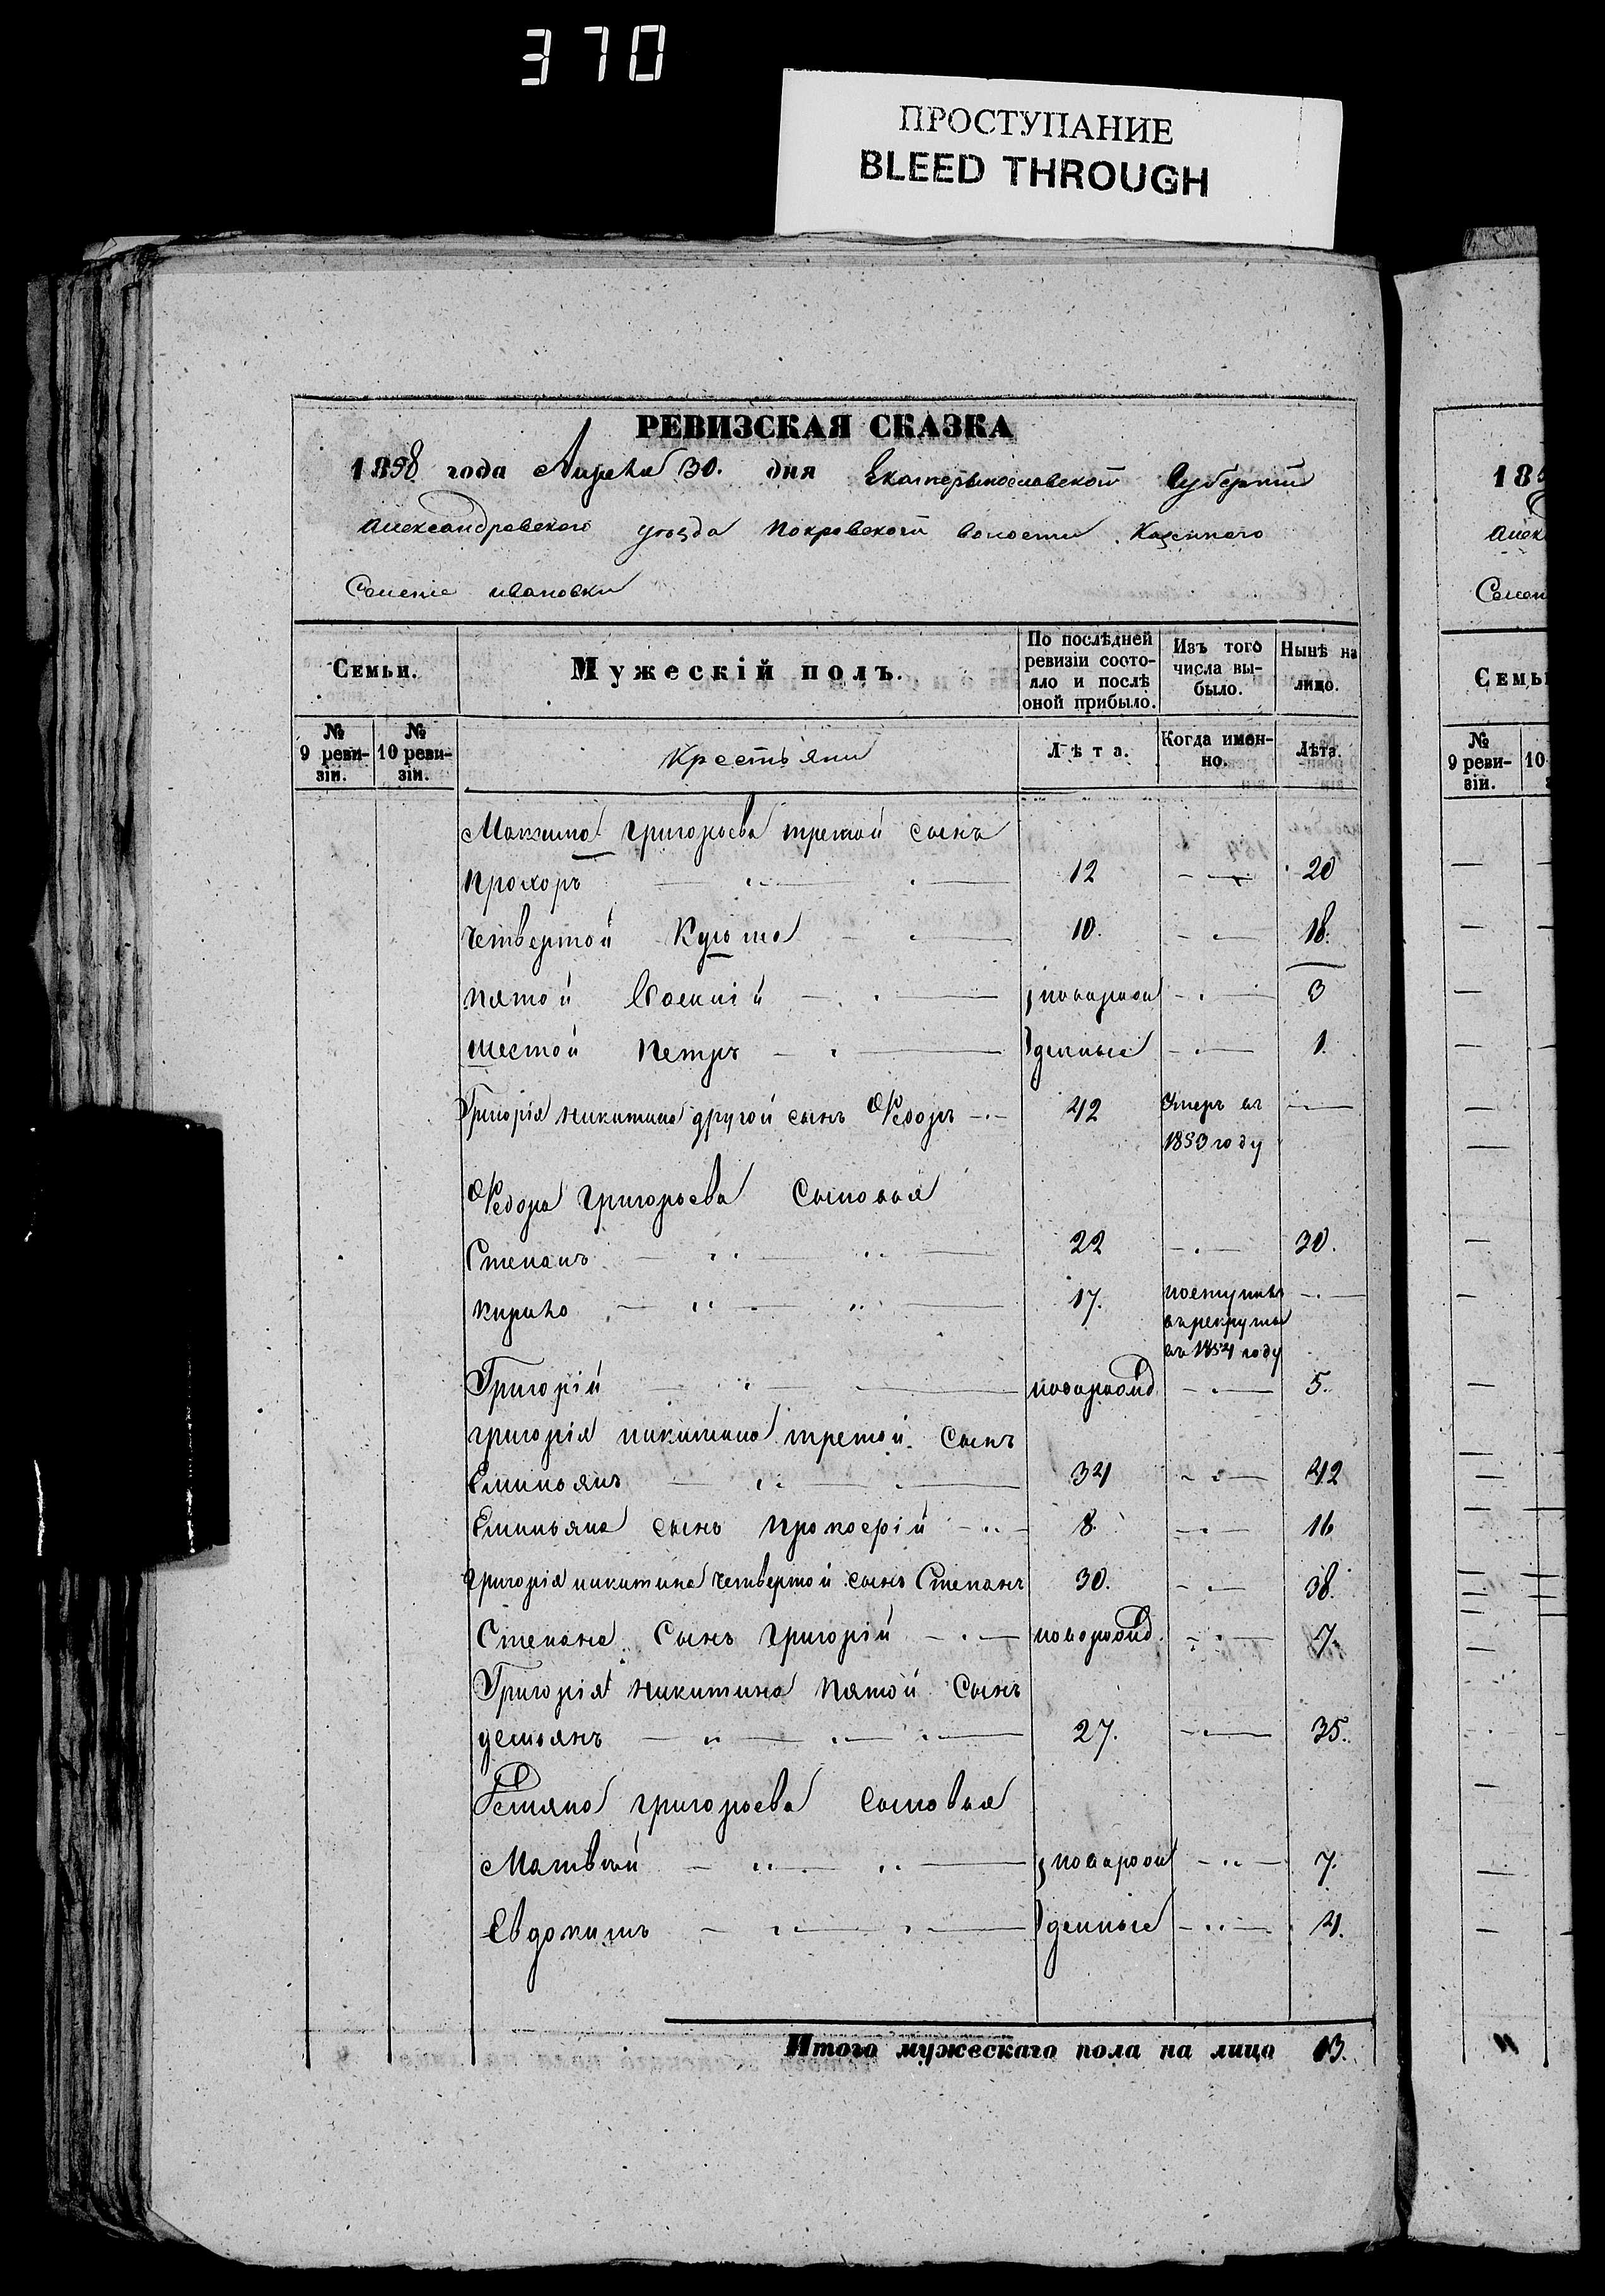 370
ПРОСТУПАНИЕ
BLEED THROUGH
РЕВИЗСКАЯ СКАЗКА
1858 года Апреля 30. дня Екатеринославской Губернии
Александровского уезда Покровской волости Казенного
Селения ивановки
Семьи. Мужескій полъ. По послѣдней ревизіи состояло и послѣ оной прибыло. Изъ того числа выбыло. Нынѣ на лицо.
№ 9 ревизіи. № 10 ревизіи. Крестьяни Лѣта. Когда именно. Лѣта.
Максима григорьева третой сынъ
прохоръ 12 20
четвертой Кузьма 10. 18.
пятой 3
шестой петръ 1.
новорожденные
Григорія никитина другой сынъ Федоръ 42 Умеръ въ 1853 году
Федора григорьева Сыновья
Степанъ 22 30.
кирило 17. поступилъ в рекруты въ 1854 году
Григорій новорожд 5.
григорія никитина третой сынъ
Емильянъ 34 42
Емильяна сынъ прокофій 8. 16
григорія никитина четвертой сынъ Степанъ 30. 38.
Степана Сынъ григорій новорожд. 7.
Григорія никитина пятой Сынъ
демьянъ 27. 35.
Демяна григорьева сыновья
Матвей 7.
Евдокимъ 4.
новорожденные
Итого мужескаго пола на лицо 13.
185
Алек
Селен
Семьи
№ 9 ревизіи. 10